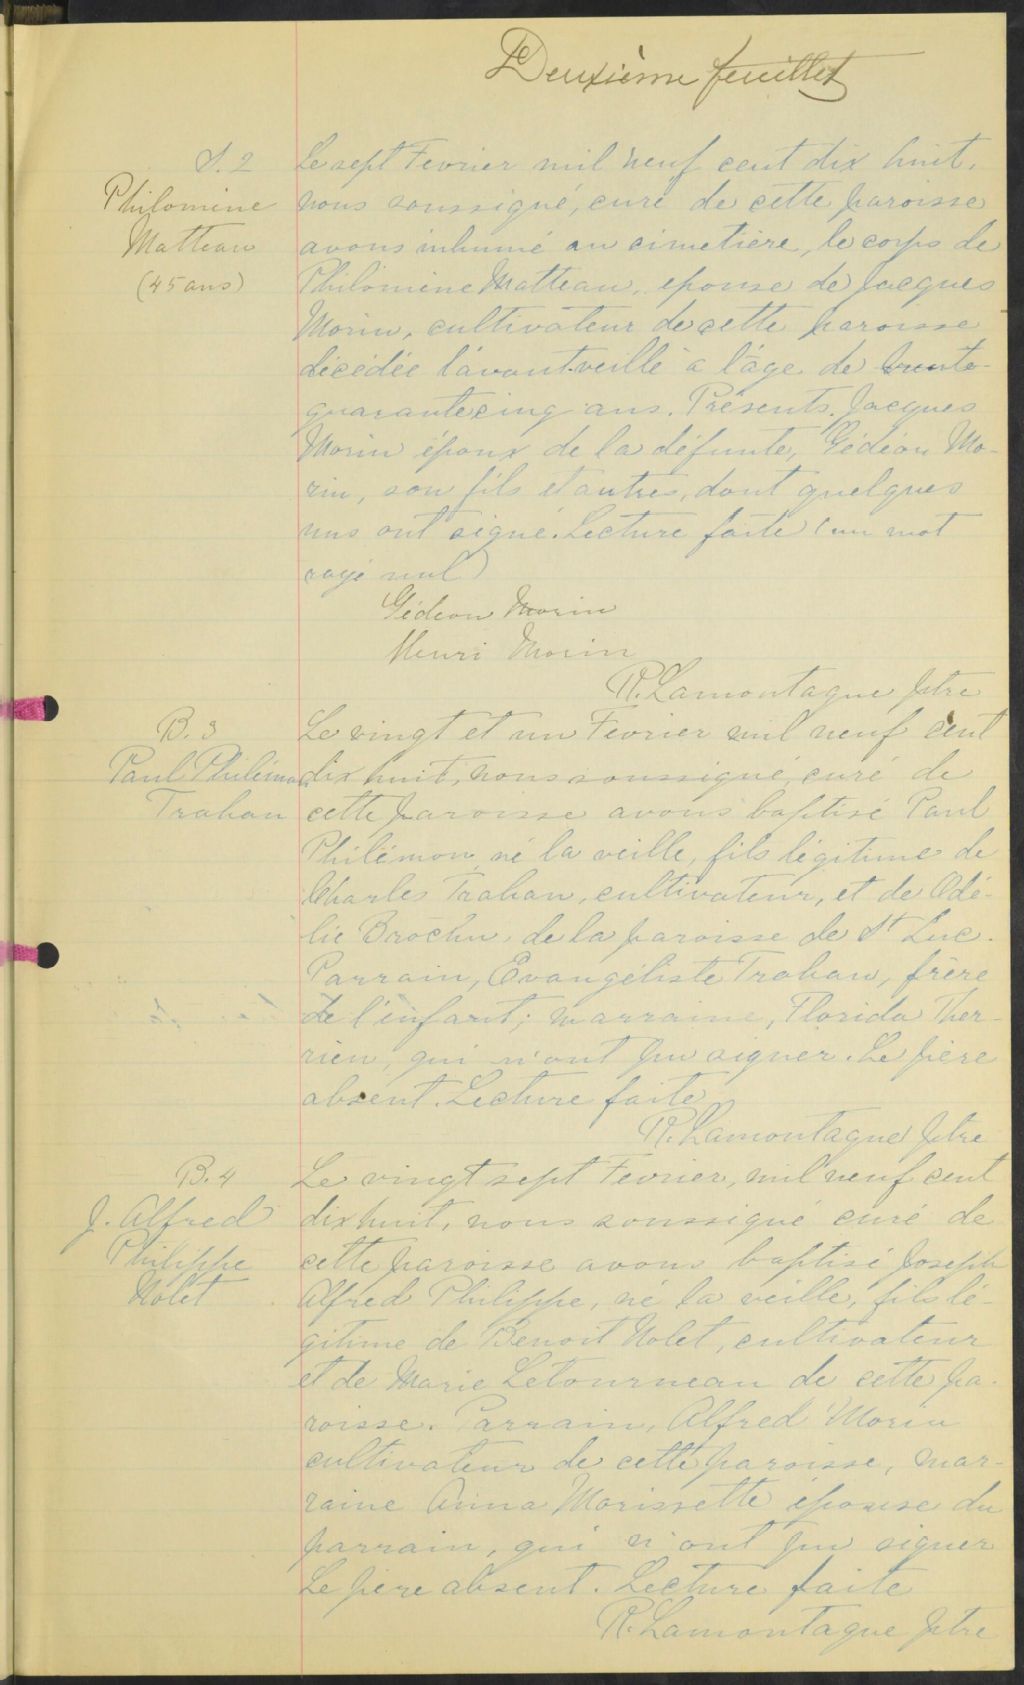 Deuxième feuillet
S. 2
Philomine
Matteau
(45 ans)
Le sept Fevrier mil neuf cent dix huit,
nous soussigné, curé de cette paroisse
avons inhumé au cimetière, le corps de
Philomène Matteau, epouse de Jacques
Morin, cultivateur de cette paroisse
décédée l'avant-veille à l'âge de trente-
quarantecinq ans. Présents, Jacques
Morin époux de la défunte, Gédéon Mo-
rin, son fils et autres, dont quelques
uns ont signé. Lecture faite (un mot
rayé nul)
Gédeon Morin
Henri Morin
R. Lamontagne ptre
B. 3
Paul Philémon
Trahan
Le vingt et un Fevrier mil neuf cent
dix huit, nous soussigné, curé de
cette paroisse avons baptisé Paul
Philémon, né la veille, fils légitime de
Charles Trahan, cultivateur, et de Odé-
lie Brochu, de la paroisse de St Luc.
Parrain, Evangéliste Trahan, frère
de l'enfant; marraine, Florida Ther-
rien, qui n'ont pu signer. Le père
absent. Lecture faite
R. Lamontagne ptre
B. 4
J. Alfred
Philippe
Nolet
Le vingt sept Fevrier, mil neuf cent
dix huit, nous soussigné curé de
cette paroisse avons baptisé Joseph
Alfred Philippe, né la veille, fils lé-
gitime de Benoit Nolet, cultivateur
et de Marie Letourneau de cette pa-
roisse. Parrain, Alfred Morin
cultivateur de cette paroisse, mar-
raine Anna Morissette épouse du
parrain, qui n'ont pu signer
Le père absent. Lecture faite
R. Lamontagne ptre